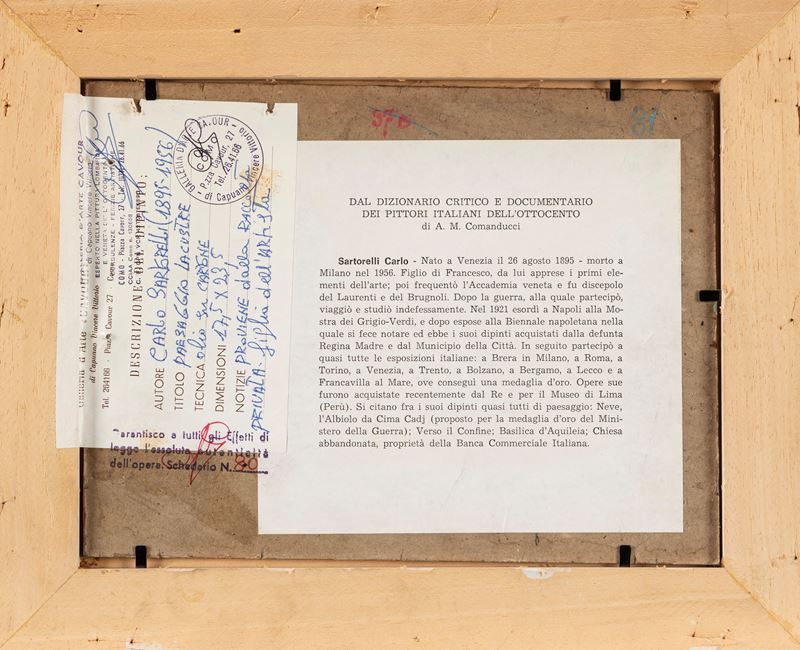 97 B
81
DAL DIZIONARIO CRITICO E DOCUMENTARIO
DEI PITTORI ITALIANI DELL'OTTOCENTO
di A. M. Comanducci
Sartorelli Carlo - Nato a Venezia il 26 agosto 1895 - morto a
Milano nel 1956. Figlio di Francesco, da lui apprese i primi ele-
menti dell'arte; poi frequentò l'Accademia veneta e fu discepolo
del Laurenti e del Brugnoli. Dopo la guerra, alla quale partecipò,
viaggiò e studiò indefessamente. Nel 1921 esordì a Napoli alla Mo-
stra dei Grigio-Verdi, e dopo espose alla Biennale napoletana nella
quale si fece notare ed ebbe i suoi dipinti acquistati dalla defunta
Regina Madre e dal Municipio della Città. In seguito partecipò a
quasi tutte le esposizioni italiane: a Brera in Milano, a Roma, a
Torino, a Venezia, a Trento, a Bolzano, a Bergamo, a Lecco e a
Francavilla al Mare, ove conseguì una medaglia d'oro. Opere sue
furono acquistate recentemente dal Re e per il Museo di Lima
(Perù). Si citano fra i suoi dipinti quasi tutti di paesaggio: Neve,
l'Albiolo da Cima Cadj (proposto per la medaglia d'oro del Mini-
stero della Guerra); Verso il Confine; Basilica d'Aquileia; Chiesa
abbandonata, proprietà della Banca Commerciale Italiana.
di Capuano Vincere Vittorio
Tel. 264166 - Piazza Cavour 27
COMO - Piazza Cavour, 27
DESCRIZIONE DEL DIPINTO:
AUTORE CARLO SARTORELLI (1895-1956)
TITOLO PAESAGGIO LACUSTRE
TECNICA olio su CARTONE
DIMENSIONI 17,5 X 23,5
NOTIZIE PROVIENE dalla RACCOLTA
PRIVATA figlia dell'ARTISTA
GALLERIA D'ARTE CAVOUR
P.zza Cavour, 27
Tel. 26.41.66
di Capuano Vincere Vittorio
COMO
Garantisco a tutti gli effetti di
legge l'assoluta autenticità
dell'opera. Schedario N. 80